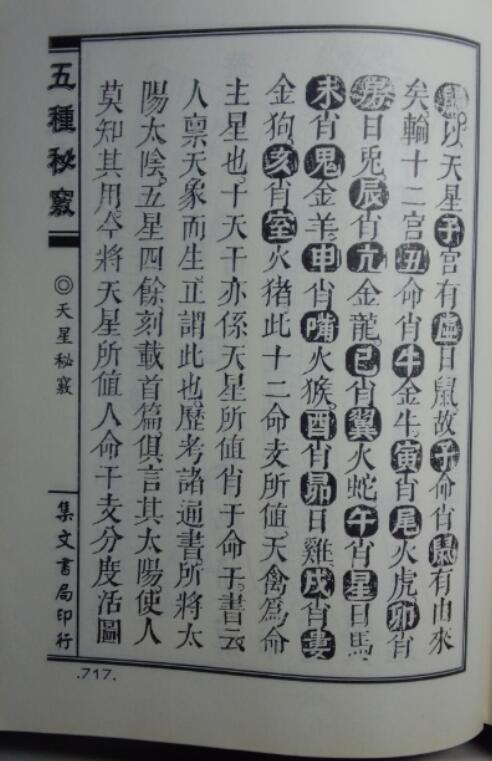 以天星子宮有虛日鼠故子命肖鼠有由來
矣輪十二宮丑命肖牛金牛。寅肖尾火虎卯肖
房日兎辰肖亢金龍巳肖翼火蛇午肖星日馬
未肖鬼金羊。申肖嘴火猴。酉肖昴日雞戌肖婁
金狗亥肖室火猪此十二命支所值。天禽爲命
主星也。十天干亦係天星所值肖于命子。書云
人禀天象而生。正謂此也。歷考諸通書。所將太
陽太陰。五星四餘。刻載首篇。俱言其太陽。使人
莫知其用。今將天星所值人命干支分度活圖
五種秘竅
◎天星秘竅
集文書局印行
.717.